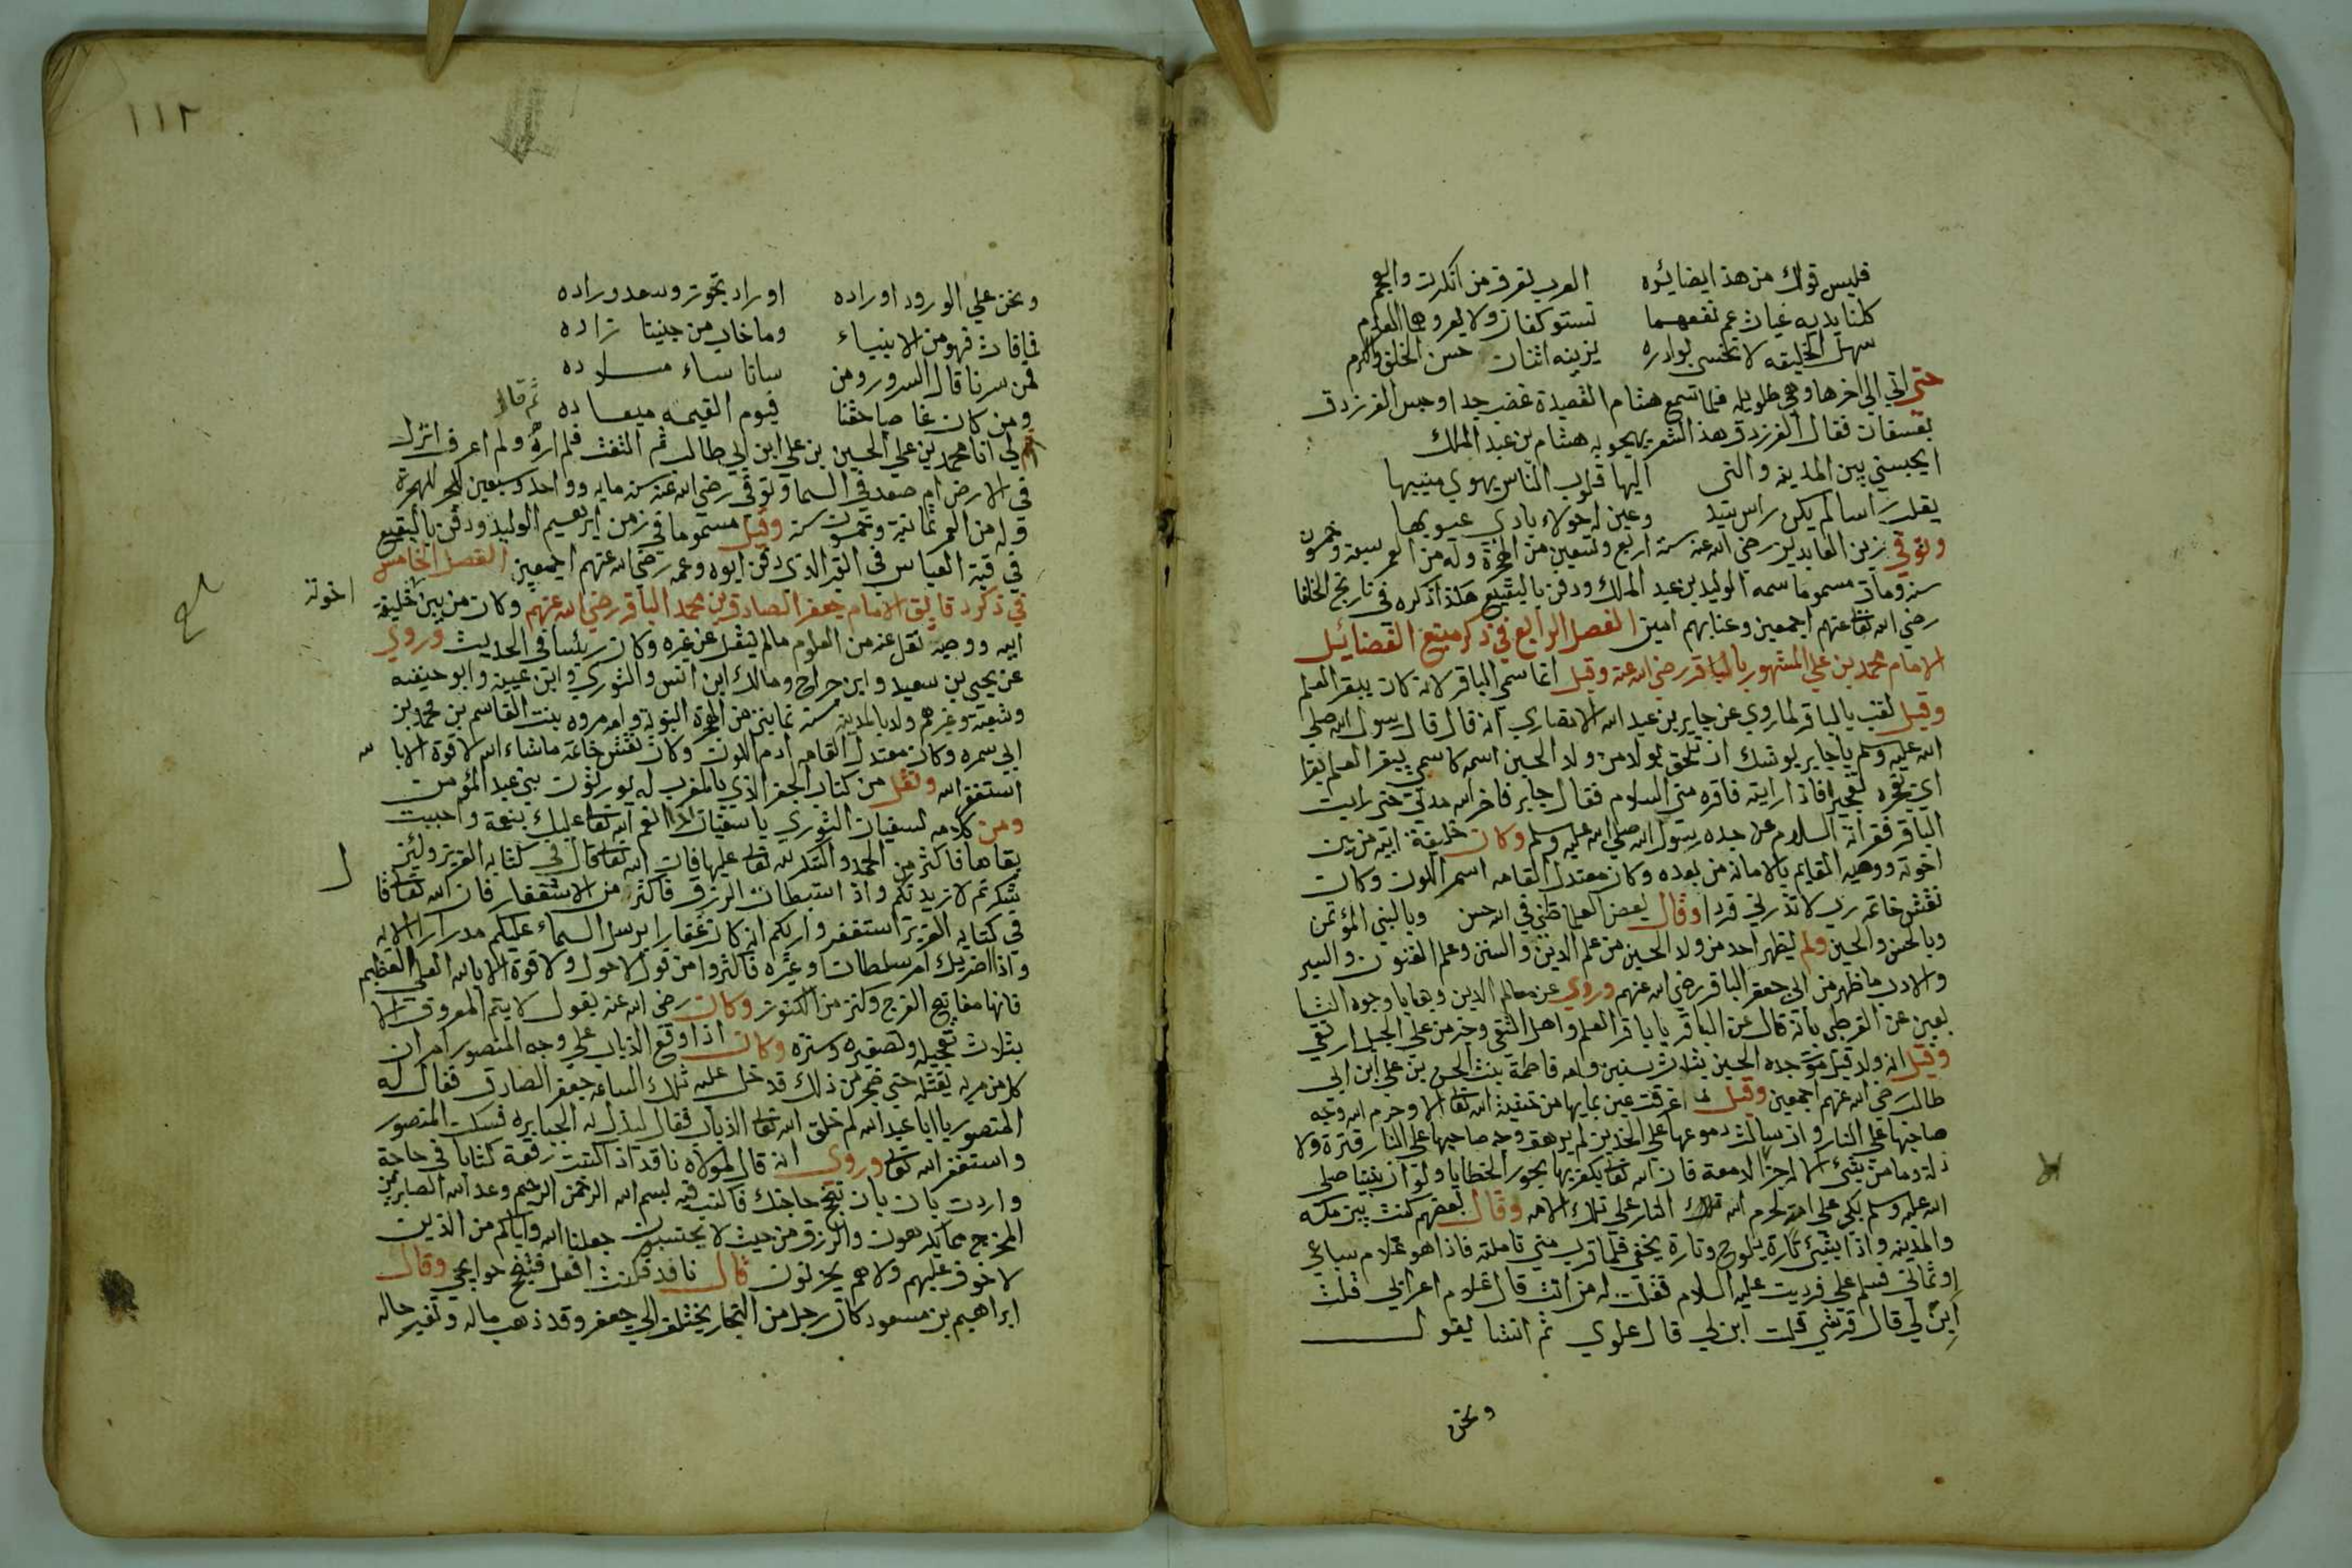 فليس قولك من هذا بضائره العرب تعرف من انكرت والعجم
كلتا يديه غياث عم نفعهما تستوكفان ولا يعروهما العدم
سهل الخليقه لا تخشى بوادره يزينه اثنان حسن الخلق والكرم
حتى اتي الى اخرها وهي طويله فلما سمع هشام القصيدة غضب جدا وحبس الفرزدق
بعسفان فقال الفرزدق هذا الشعر يهجو به هشام بن عبد الملك
ايحبسني بين المدينه والتي اليها قلوب الناس يهوي منيبها
يقلب راسا لم يكن راس سيد وعين له حولاء بادي عيوبها
وتوفي زين العابدين رضي الله عنه سنة اربع وتسعين من الهجرة وله من العمر سبعة وخمسون
سنه ومات مسموما سمه الوليد بن عبد الملك ودفن بالبقيع هكذا ذكره في تاريخ الخلفا
رضي الله تعالى عنهم اجمعين وعنا بهم امين الفصل الرابع في ذكر منبع الفضائيل
الامام محمد بن علي المشهور بالباقر رضي الله عنه وقيل انما سمي الباقر لانه كان يبقر العلم
وقيل لقب بالباقر لما روي عن جابر بن عبد الله الانصاري انه قال قال رسول الله صلى
الله عليه وسلم يا جابر يوشك ان تلحق بولد من ولد الحسين اسمه كاسمي يبقر العلم بقرا
اي يفجره تفجيرا فاذا رايته فاقره مني السلام فقال جابر فاخر الله مدتي حتى رايت
الباقر فقراته السلام عن جده رسول الله صلى الله عليه وسلم وكان خليفة ابيه من بين
اخوته ووصيه القايم بالامامه من بعده وكان معتدل القامه اسمر اللون وكان
نقش خاتمه رب لا تذرني فردا وقال بعض العلما ظني في الله حسن وبالنبي المؤتمن
وبالحسن والحسين ولم يظهر احد من ولد الحسين من علم الدين والسنن وعلم الفنون والسير
والادب ما ظهر من ابي جعفر الباقر رضي الله عنهم وروي عن معالم الدين وبقايا وجوه التا
بعين عن القرطي بانه قال عن الباقر يا باقر العلم واهل التقى وخير من على الجبل ارتقي
وقيل انه ولد قبل موت جده الحسين بثلاث سنين وامه فاطمة بنت الحسن بن علي ابن ابي
طالب رضي الله عنهم اجمعين وقيل ما اغرقت عين بمايها من خشية الله تعالى الا وحرم الله وجه
صاحبها على النار وان سالت دموعها على الخدين لم يرهق وجه صاحبها على النار قترة ولا
ذلة وما من شيء الا له جزا الا الدمعة فان الله تعالى يكفر بها بحور الخطايا ولو ان نبينا صلى
الله عليه وسلم بكى على امة لحرم الله تلك النار على تلك الامه وقال بعضهم كنت بين مكه
والمدينه واذا بشيء تارة يلوح وتارة يخفي فلما قرب مني تاملته فاذا هو غلام سباعي
او ثماني فسلم علي فرديت عليه السلام فقلت له من انت قال غلام اعرابي قلت
ابن لي قال قرشي قلت ابن لي قال علوي ثم انشا يقول
ونحن
١١٢
ونحن علي الورود اوراده اوراد بحوز وسعد وراده
فما فاز فهو من الانبياء وما خاب من جينا زاده
فمن سرنا قال السرور ومن سانا ساء مسلاده
ومن كان غاصبا حقنا فيوم القيمه ميعاده ثم قال
لي انا محمد بن علي الحسين بن علي ابن ابي طالب ثم التفت فلم اره ولم اعرف انزل
في الارض ام صعد في السما وتوفي رضي الله عنه سنه مايه وواحد وسبعين للهجرة
وله من العمر ثمانية وخمسون سنة وقيل مسموما في زمن ابرهيم الوليد ودفن بالبقيع
في قبة العباس في القبر الذى دفن ابوه وعمه رضي الله عنهم اجمعين الفصل الخامس
في ذكر دقايق الامام جعفر الصادق بن محمد الباقر رضي الله عنهم وكان من بين خليفة
اخوته
ابيه ووصيه نقل عنه من العلوم مالم ينقل عن غره وكان ريئسا في الحديث وروي
عن يحيى بن سعيد وابن جراج ومالك ابن انس والثوري وابن عيينه وابو حنيفه
وشعبة وغيرهم ولد بالمدينه سنه ثمانين من الهجرة النبويه وامه مروه بنت القاسم بن محمد بن
ابي سمره وكان معتدل القامه ادم اللون وكان نقش خاتمه ماشاء الله لا قوة الا بالله
استغفر الله ونقل من كتاب الجفر الذي بالمغرب له يورثون بني عبد المؤمن
ومن كلامه لسفيان الثوري يا سفيان اذا انعم الله تعالى عليك بنعمة واحببت
بقاها فاكثر من الحمد والشكر لله تعالى عليها فان الله تعالى قال في كتابه العزيز ولئن
شكرتم لازيدنكم واذا استبطات الرزق فاكثر من الاستغفار فان الله تعالى قا
ل
في كتابه العزيز استغفروا ربكم انه كان غفارا يرسل السماء عليكم مدرارا الايه
واذا اضربك امر سلطان وغيره فاكثروا من قول لا حول ولا قوة الا بالله العلي العظيم
فانها مفاتيح الفرج وكنز من الكنوز وكان رضي الله عنه يقول لا يتم المعروف الا
بثلاث تعجيله وتصغيره وستره وكان اذا وقع الذباب علي وجه المنصور امر ان
كل من مر به يقتله حتي ضجر من ذلك فدخل عليه تلك الساعه جعفر الصادق فقال له
المنصور يا ابا عبد الله لم خلق الله تعالى الذباب فقال ليذل به الجبابره فسكت المنصور
واستغفر الله تعالى وروى انه قال لمولاه نافد اذا كتبت رقعة كتابا في حاجة
واردت بان تنجح حاجتك فاكتب فيه بسم الله الرحمن الرحيم وعد الله الصابرين
المخرج مما يكرهون والرزق من حيث لا يحتسبون جعلنا الله واياكم من الذين
لا خوف عليهم ولا هم يحزنون قال نافد فكنت افعل فتنجح حوايجي وقال
ابراهيم بن مسعود كان رجل من التجار يختلف الي جعفر وقد ذهب ماله وتغير حاله